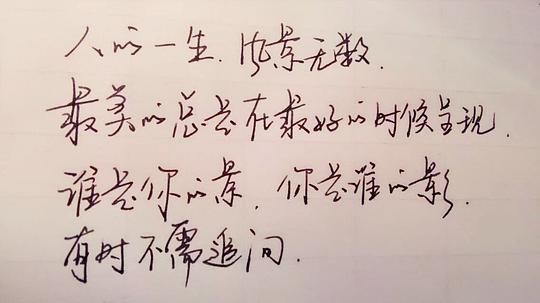 人的一生.风景无数.
最美的总是在最好的时候呈现.
谁是你的景.你是谁的影.
有时不需追问.